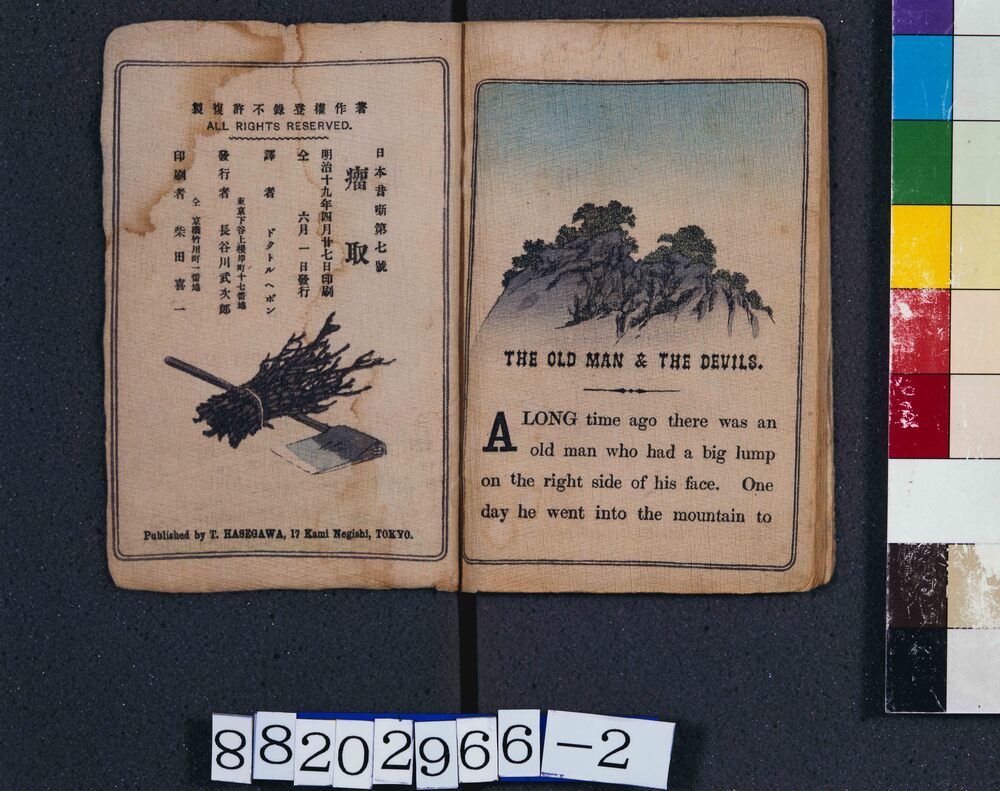 製複許不錄登權作著
ALL RIGHTS RESERVED.
日本昔噺第七號
瘤取
明治十九年四月廿七日印刷
仝 六月一日發行
譯者 ドクトル ヘボン
東京下谷上根岸町十七番地
發行者 長谷川武次郎
仝 京橋竹川町一番地
印刷者 柴田喜一
Published by T. HASEGAWA, 17 Kami Negishi, TOKYO.
THE OLD MAN & THE DEVILS.
A LONG time ago there was an
old man who had a big lump
on the right side of his face. One
day he went into the mountain to
88202966-2